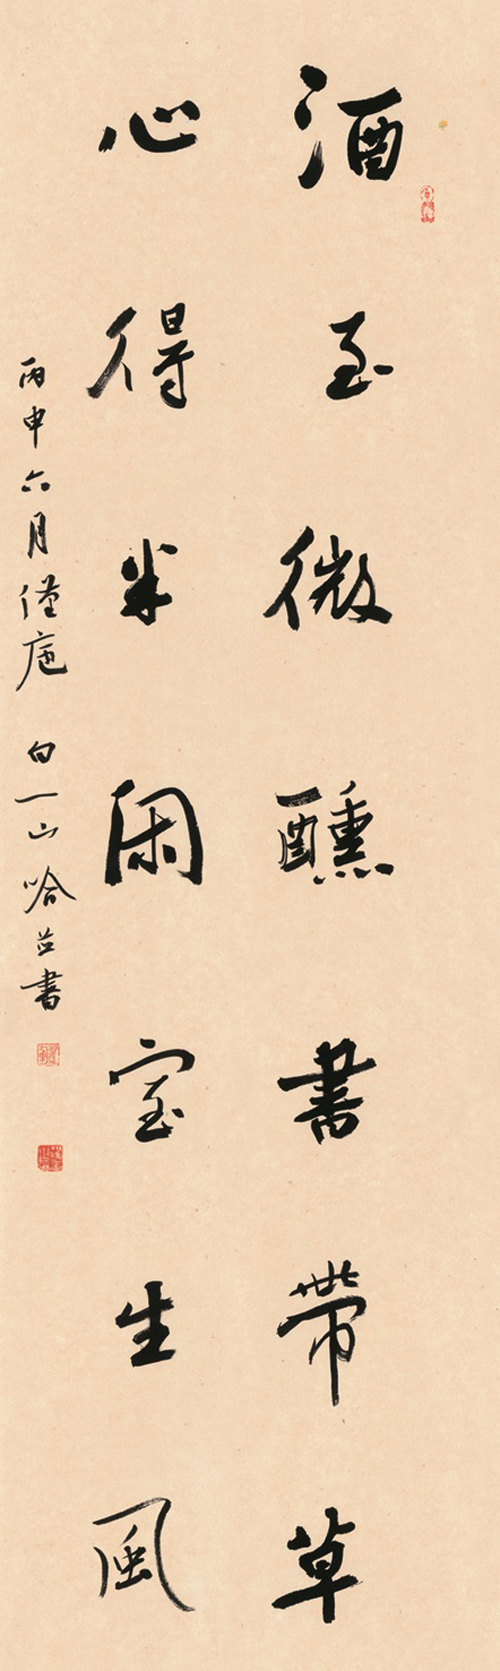 酒至微醺書帶草
心得半閑室生風
丙申六月僅庵 白一山 哈芷書